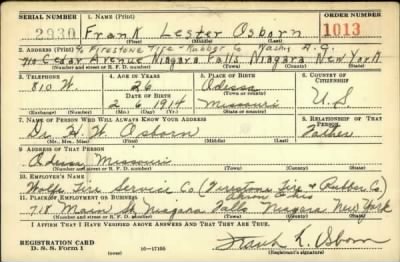 SERIAL NUMBER 1. NAME (Print) ORDER NUMBER
2930 Frank Lester Osborn 1013
(First) (Middle) (Last)
2. ADDRESS (Print) % Firestone Tire + Rubber Co Wash, D.C.
Cedar Avenue Niagara Falls Niagara New York
(Number and street or R. F. D. number) (Town) (County) (State)
3. TELEPHONE 4. AGE IN YEARS 5. PLACE OF BIRTH 6. COUNTRY OF CITIZENSHIP
810 W 26 Odessa
DATE OF BIRTH (Town or county)
2 6 1914 Missouri U.S
(Exchange) (Number) (Mo.) (Day) (Yr.) (State or country)
7. NAME OF PERSON WHO WILL ALWAYS KNOW YOUR ADDRESS 8. RELATIONSHIP OF THAT PERSON
Dr. H. W. Osborn Father
(Mr., Mrs., Miss) (First) (Middle) (Last)
9. ADDRESS OF THAT PERSON
Odessa Missouri
(Number and street or R. F. D. number) (Town) (County) (State)
10. EMPLOYER'S NAME
Wolfe Tire Service Co (Firestone Tire & Rubber Co)
11. PLACE OF EMPLOYMENT OR BUSINESS Akron Ohio
718 Main St Niagara Falls Niagara New York
(Number and street or R. F. D. number) (Town) (County) (State)
I AFFIRM THAT I HAVE VERIFIED ABOVE ANSWERS AND THAT THEY ARE TRUE.
REGISTRATION CARD
D. S. S. Form 1 (over) 16—17105
Frank L. Osborn
(Registrant's signature)